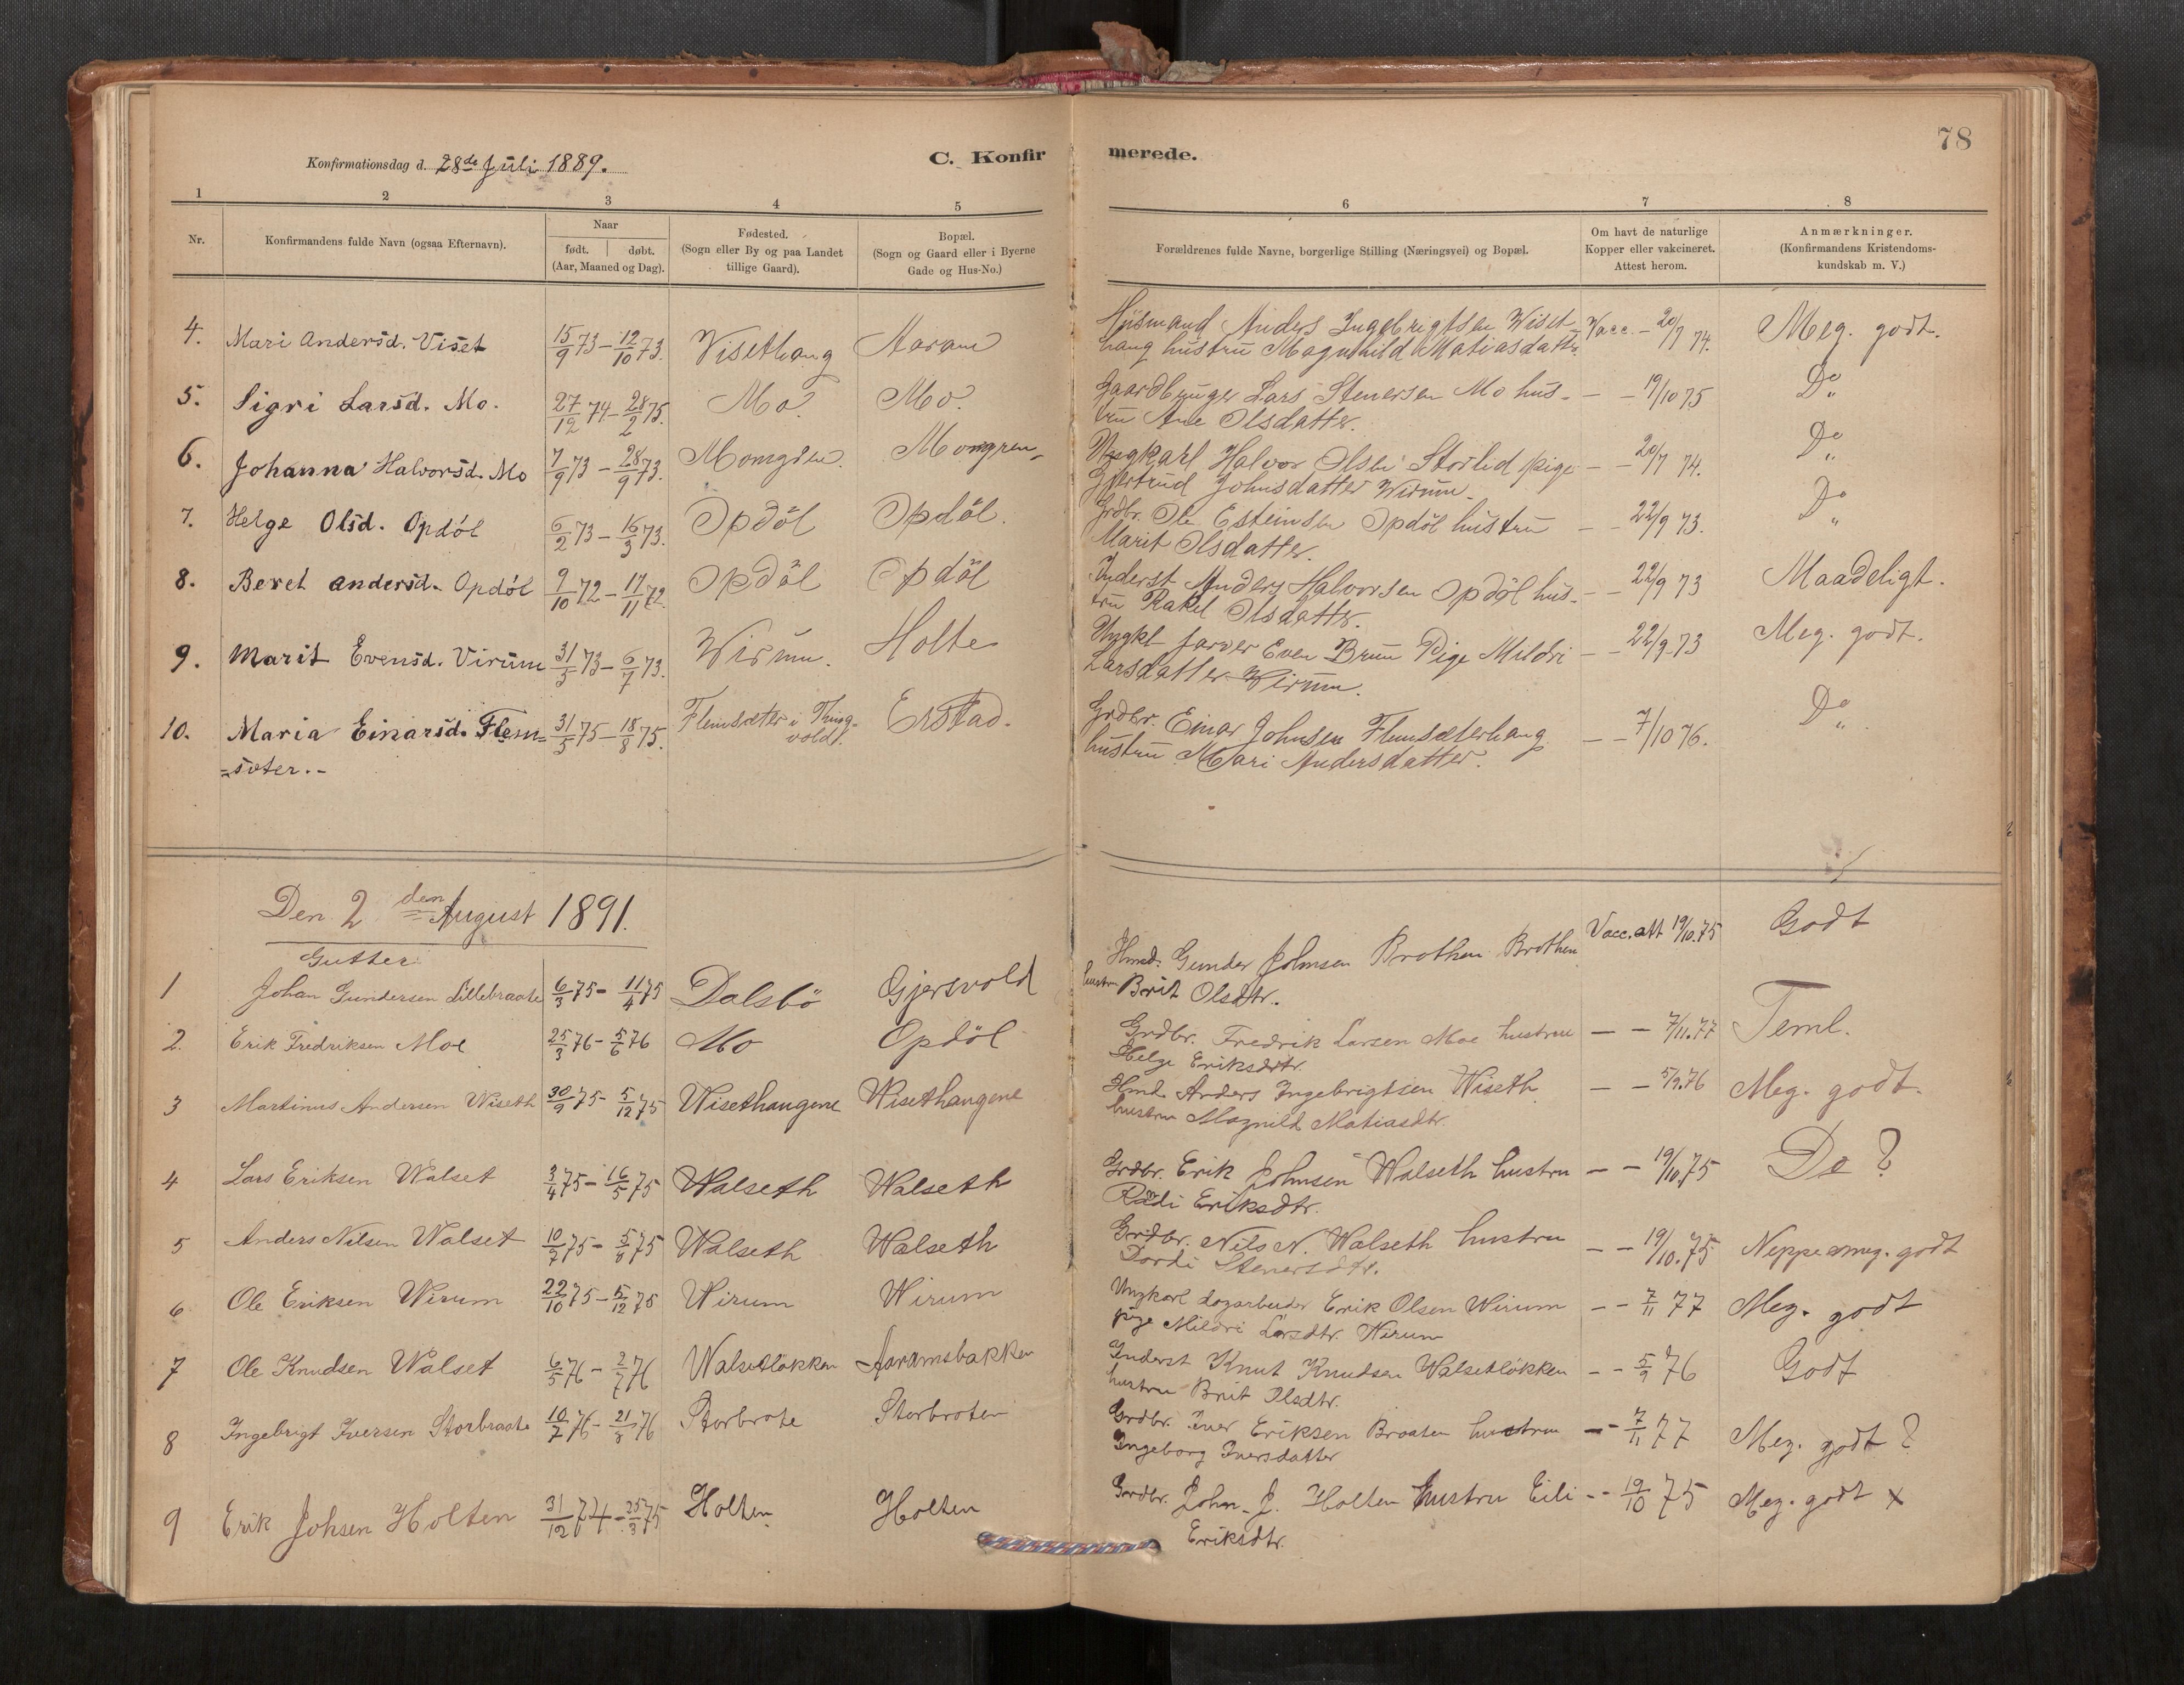 78
Konfirmationsdag d. 28de Juli 1889.
C. Konfirmerede.
1 2 3 4 5 6 7 8
Nr.
Konfirmandens fulde Navn (ogsaa Efternavn).
Naar
født. døbt.
(Aar, Maaned og Dag).
Fødested.
(Sogn eller By og paa Landet
tillige Gaard).
Bopæl.
(Sogn og Gaard eller i Byerne
Gade og Hus-No.)
Forældrenes fulde Navne, borgerlige Stilling (Næringsvei) og Bopæl.
Om havt de naturlige
Kopper eller vakcineret.
Attest herom.
Anmærkninger.
(Konfirmandens Kristendoms-
kundskab m. V.)
4. Mari Andersd. Viset 15/9 73 – 12/10 73. Visethaug Aaram Húsmand Anders Ingebrigtsen Wiset- Vacc. – 20/7 74. Meg. godt.
haug hústrú Magnhild Matiasdattr.
5. Sigri Larsd. Mo. 27/12 74 – 28/2 75. Mo. Mo. Gaardbruger Lars Stenersen Mo hus- – – 19/10 75 Do "
trú Ane Olsdatter.
6. Johanna Halvorsd. Mo 7/9 73 – 28/9 73. Momgren. Momgren Ungkarl Halvor Olsen Storlid pige – – 20/7 74. Do "
Gjertrud Johnsdatter Wirum.
7. Helge Olsd. Opdöl 6/2 73 – 16/3 73. Opdöl Opdöl. Grdbr. Ole Esteinsen Opdöl hústrú – – 22/9 73. Do "
Marit Olsdatter.
8. Beret Andersd. Opdöl 9/10 72 – 17/11 72. Opdöl Opdöl Inderst Anders Halvorsen Opdöl hus- – – 22/9 73 Maadeligt.
trú Rakel Olsdattr.
9. Marit Evensd. Virúm 31/5 73 – 6/7 73. Wirúm. Holte Ungkl. farver Even Bruun Pige Mildri – – 22/9 73 Meg. godt.
Larsdatter Wirum.
10. Maria Einarsd. Flem= 31/5 75 – 18/8 75. Flemsæter i Thing- Erstad. Grdbr. Einar Johnsen Flemsæterhaug – – 7/10 76. Do "
=søter.- vold. hústrú Mari Andersdatter.
Den 2den August 1891.
Gutter
1 Johan Gundersen Lillebraate 6/3 75 – 11/4 75 Dalsbö Gjersvold Hmd. Gunder Johnsen Brothen Brothen Vacc. att 19/10. 75 Godt
hustru Berit Olsdtr.
2. Erik Fredriksen Moe 25/3 76 – 5/6 76 Mo Opdöl Grdbr. Fredrik Larsen Moe hustru – – 7/11. 77 Teml.
Helge Eriksdtr.
3 Martinus Andersen Wiseth 30/9 75 – 5/12 75 Wisethaugene Wisethaugene Hmd. Anders Ingebrigtsen Wiseth – – 5/9. 76 Meg. godt.
hustru Magnild Matiasdtr.
4 Lars Eriksen Walset 3/4 75 – 16/5 75 Walseth Walseth Grdbr. Erik Johnsen Walseth hustru – – 19/10. 75 Do ?
Eriksdtr.
5 Anders Nilsen Walset 10/7 75 – 5/8 75 Walseth Walseth Grdbr. Nils N. Walseth hustru – – 19/10. 75 Neppe meg. godt
Dordi Stenersdtr.
6 Ole Eriksen Wirum 22/10 75 – 5/12 75 Wirum Wirum Ungkarl dagarbeider Erik Olsen Wirum – – 7/11 77 Meg. godt
pige Mildri Larsdtr. Wirum
7 Ole Knudsen Walset 6/5 76 – 2/7 76 Walsetløkken Aaramsbakken Inderst Knut Knudsen Walsetløkken – – 5/9 76 Godt
hustru Brit Olsdtr.
8 Ingebrigt Iversen Storbraate 10/7 76 – 21/8 76 Storbrote Storbroten Grdbr. Iver Eriksen Broaten hustru – – 7/11 77 Meg. godt ?
Ingeborg Iversdatter
9 Erik Johsen Holten 31/12 74 – 25/3 75 Holten Holten Grdbr. John J. Holten Hustru Eili – – 19/10 75 Meg. godt x
Eriksdtr.